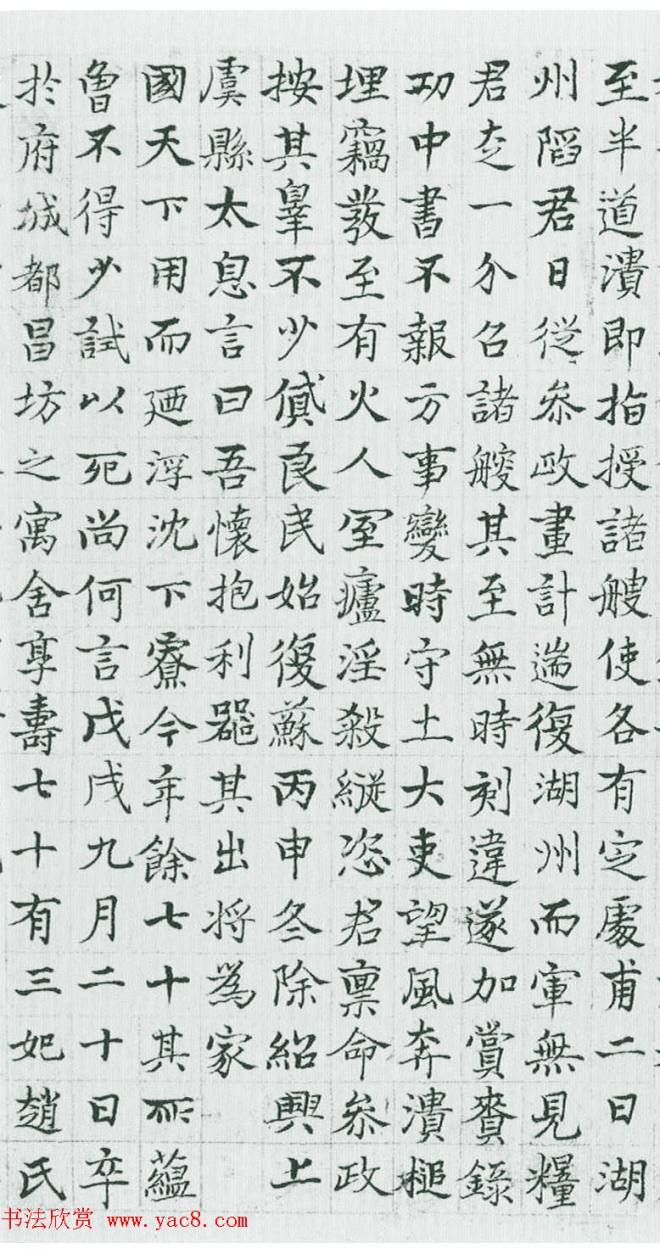 至半道潰即指授諸艘使各有定處甫二日湖
州陷君日從叅政畫計遄復湖州而軍無見糧
君立一分召諸艘其至無時刻違遂加賞賚録
功中書不報方事變時守土大吏望風奔潰槌
埋竊發至有火人室廬淫殺縱恣君稟命叅政
按其辠不少貸良民始復蘇丙申冬除紹興上
虞縣太息言曰吾懷抱利器其出将為家
國天下用而廼浮沈下寮今年餘七十其所蘊
曾不得少試以死尚何言戊戌九月二十日卒
於府城都昌坊之寓舍享壽七十有三妃趙氏
书法欣赏 www.yac8.com